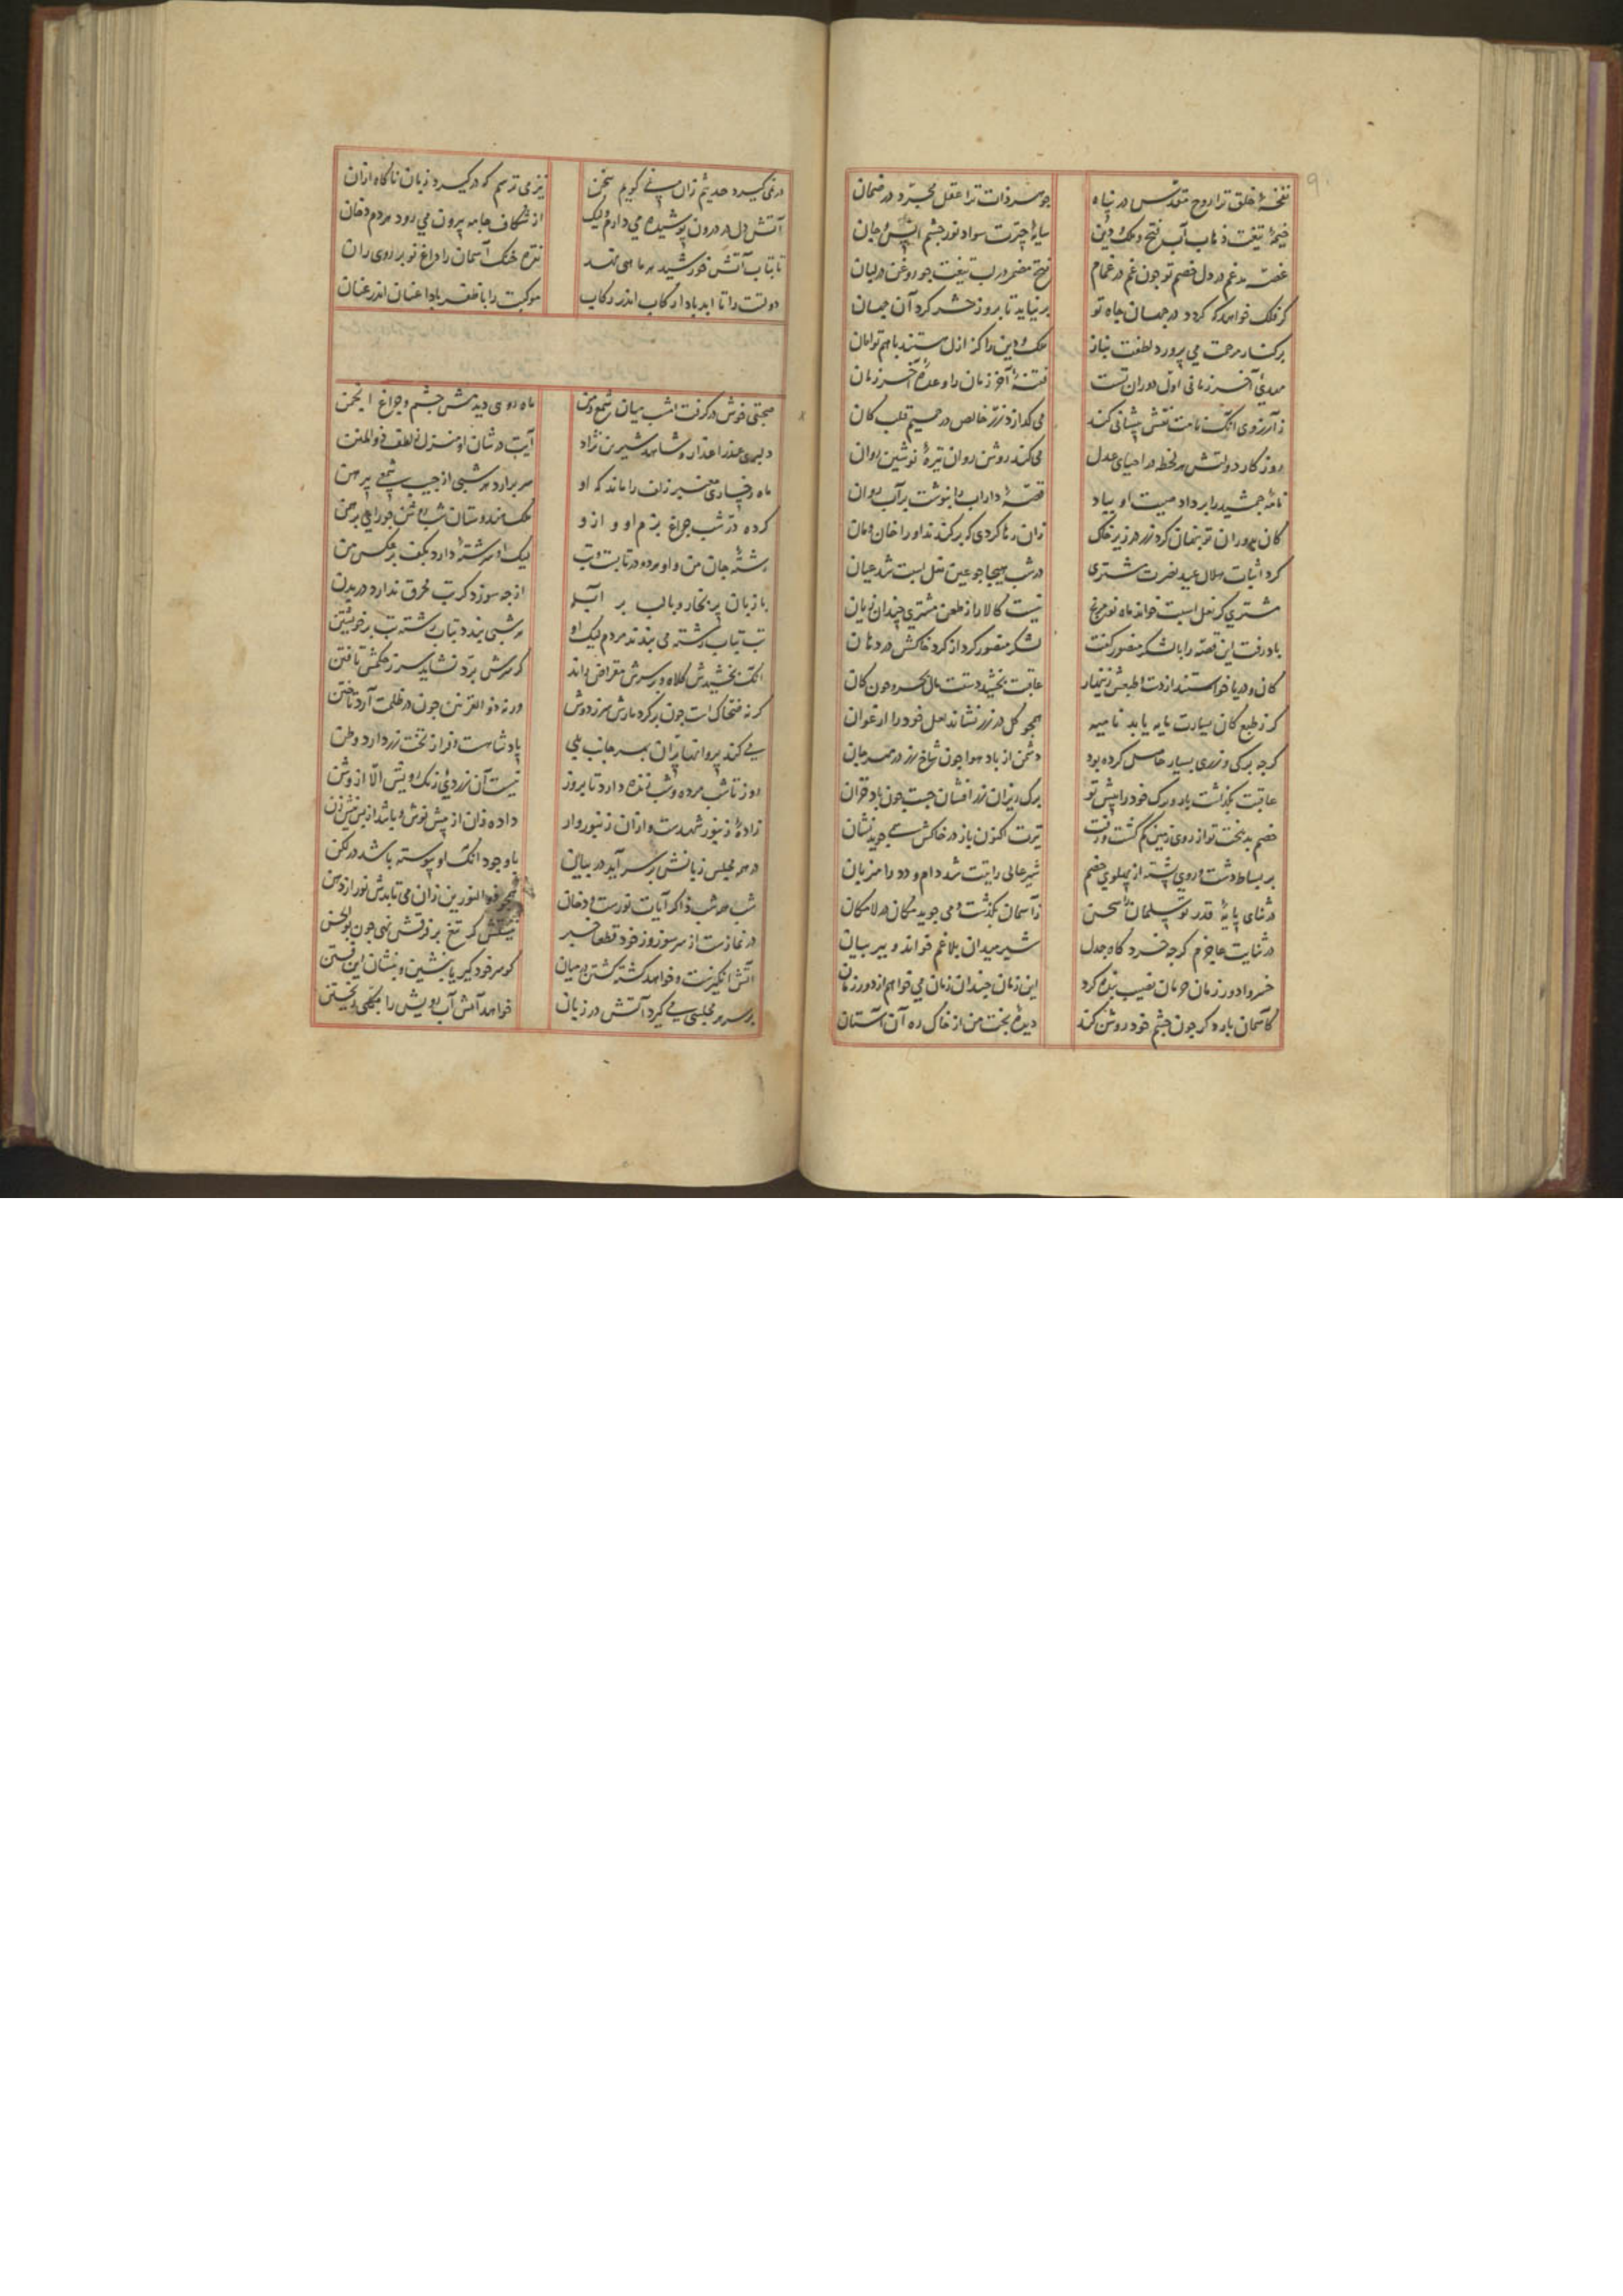 نفخهٔ خلق ترا روح مقدس در پناه
جوهر ذات ترا عقل مجرد در ضمان
چشمهٔ تیغت ذهاب آب فتح و ملک و دین
سایهٔ چترت سواد نور چشم انس و جان
غصه مدغم در دل خصم تو چون غم در غمام
فتح مضمر در لب تیغت چو روغن در لبان
گر فلک خواهد که گردد در جهان جاه تو
برنیاید تا بروز حشر گرد آن جهان
بر کنار مرحمت می پرورد لطفت بناز
ملک و دین را کز ازل هستند با هم توامان
مهدی آخر زمانی اول دوران تست
فتنهٔ آخر زمان را وعدهٔ آخر زمان
ز آرزوی آنک نامت نقش پیشانی کند
می گدازد زر خالص در صمیم قلب کان
روزگار دولتش هر لحظه در احیای عدل
می کند روشن روان تیرهٔ نوشین روان
نامهٔ جمشید را بر داد هیبت او بباد
قصهٔ داراب را بنوشت بر آب روان
کان بدوران تو پنهان کرد زر در زیر خاک
زان رها کردی که برکندند او را خان و مان
کرد اثبات هلال عید نصرت مشتری
در شب هیجا چو عین نعل اسبت شد عیان
مشتری گر نعل اسبت خواند ماه نو مرنج
نیست کالا را ز طعن مشتری چندان زیان
باد رفت این قصه را با لشکر منصور گفت
لشکر منصور کرد از گرد خاکش در دهان
کان و دریا خواستند از دست و طبعش زینهار
عاقبت بخشید دستت مال بحر و خون کان
گر ز طبع کان سیارت مایه یابد نامیه
همچو گل در زر نشاند لعل خود را ارغوان
گرچه برگی و زری بسیار حاصل کرده بود
دشمن از باد هوا چون شاخ رز در مهرجان
عاقبت بگذاشت باد و برگ خود را پیش تو
برگ ریزان زر افشان جست چون باد خزان
خصم بدبخت تو از روی زمین گم گشت و رفت
تیرت اکنون باز در خاکش همی جوید نشان
بر بساط دشت و روی پشته از پهلوی خصم
شیر عالی رایتت شد دام و دد را میزبان
در ثنای پایهٔ قدر تو سلمان سخن
ز آسمان بگذشت و می جوید مکان در لامکان
در ثنایت عاجزم گرچه خرد گاه جدل
شیر میدان بلاغم خواند و ببر بیان
خسروا دور زمان حرمان نصیب بنده کرد
این زمان چندان زمان می خواهم از دور زمان
کآسمان باره گر چون چشم خود روشن کند
دیدهٔ بخت من از خاک ره آن آستان
در نمی گیرد حدیثم زان نمی گویم سخن
نیز می ترسم که در گیرد زبان ناگاه از آن
آتش دل در درون پوشیده می دارم ولیک
از شکاف جامه بیرون می رود هر دم دخان
تا بتاب آتش خورشید هر ماهی نهد
نقره خنگ آسمان را داغ نو بر روی ران
دولتت را تا ابد بادا رکاب اندر رکاب
موکبت را با ظفر بادا عنان اندر عنان
صحبتی خوش در گرفت امشب میان شمع و من
ماه روی دیدمش چشم و چراغ انجمن
دلبری عذرا عذار و شاهد شیرین نژاد
آیت در شان او منزل ز لطف ذوالمنن
ماه رخساری معنبر زلف را ماند که او
سر برآرد هر شبی از جیب شمعی پیرهن
کرده در شب چراغ بزم او و از او
ملک هندوستان شب روشن چو رای برهمن
رشتهٔ جان من و او هر دو در تابست و تب
لیک او سر رشتهٔ دارد بکف بر عکس من
با زبان پر بخار و با لب پر آبله
از چه سوزد گر تب محرق ندارد در بدن
تب بتاب رشته می بندند مردم لیک او
هر شبی بندد بتاب رشته تب بر خویشتن
آنک بخشیدش کلاه و بر سرش مقراض راند
گر سرش برد نشاید سر ز حکمش تافتن
گر نه ضحاک است چون بر کرد مارش سر ز دوش
ورنه ذوالقرنین چون در ظلمت آرد تاختن
می کند پروانها پران بهر جانب بلی
پادشاهست و فراز تخت زر دارد وطن
روز تا شب مرده و شب زنده دارد تا بروز
نیست آن زردی رنگ رویش الا از وسن
زادهٔ زنبور شهدست و از آن زنبوروار
داده زان از پیش نوش و باشد از پس نیش زن
در هر مجلس زبانش بر سر آید در بیان
با وجود آنک او پیوسته باشد در لکن
شب همه شب ذاکر آیات نورست و دخان
همچو ذوالنورین زان می تابدش نور از دهن
در نمازست از سر سوز و ز خود قطعا خبر
نیستش گر تیغ بر فرقش نهی چون بوالحسن
آتش انگیزست و خواهد کشته گشتن در میان
گو سر خود گیر یا بنشین و بنشان این فتن
بر سر هر مجلسی می گیرد آتش در زبان
خواهد آتش آب رویش را بکلی ریختن